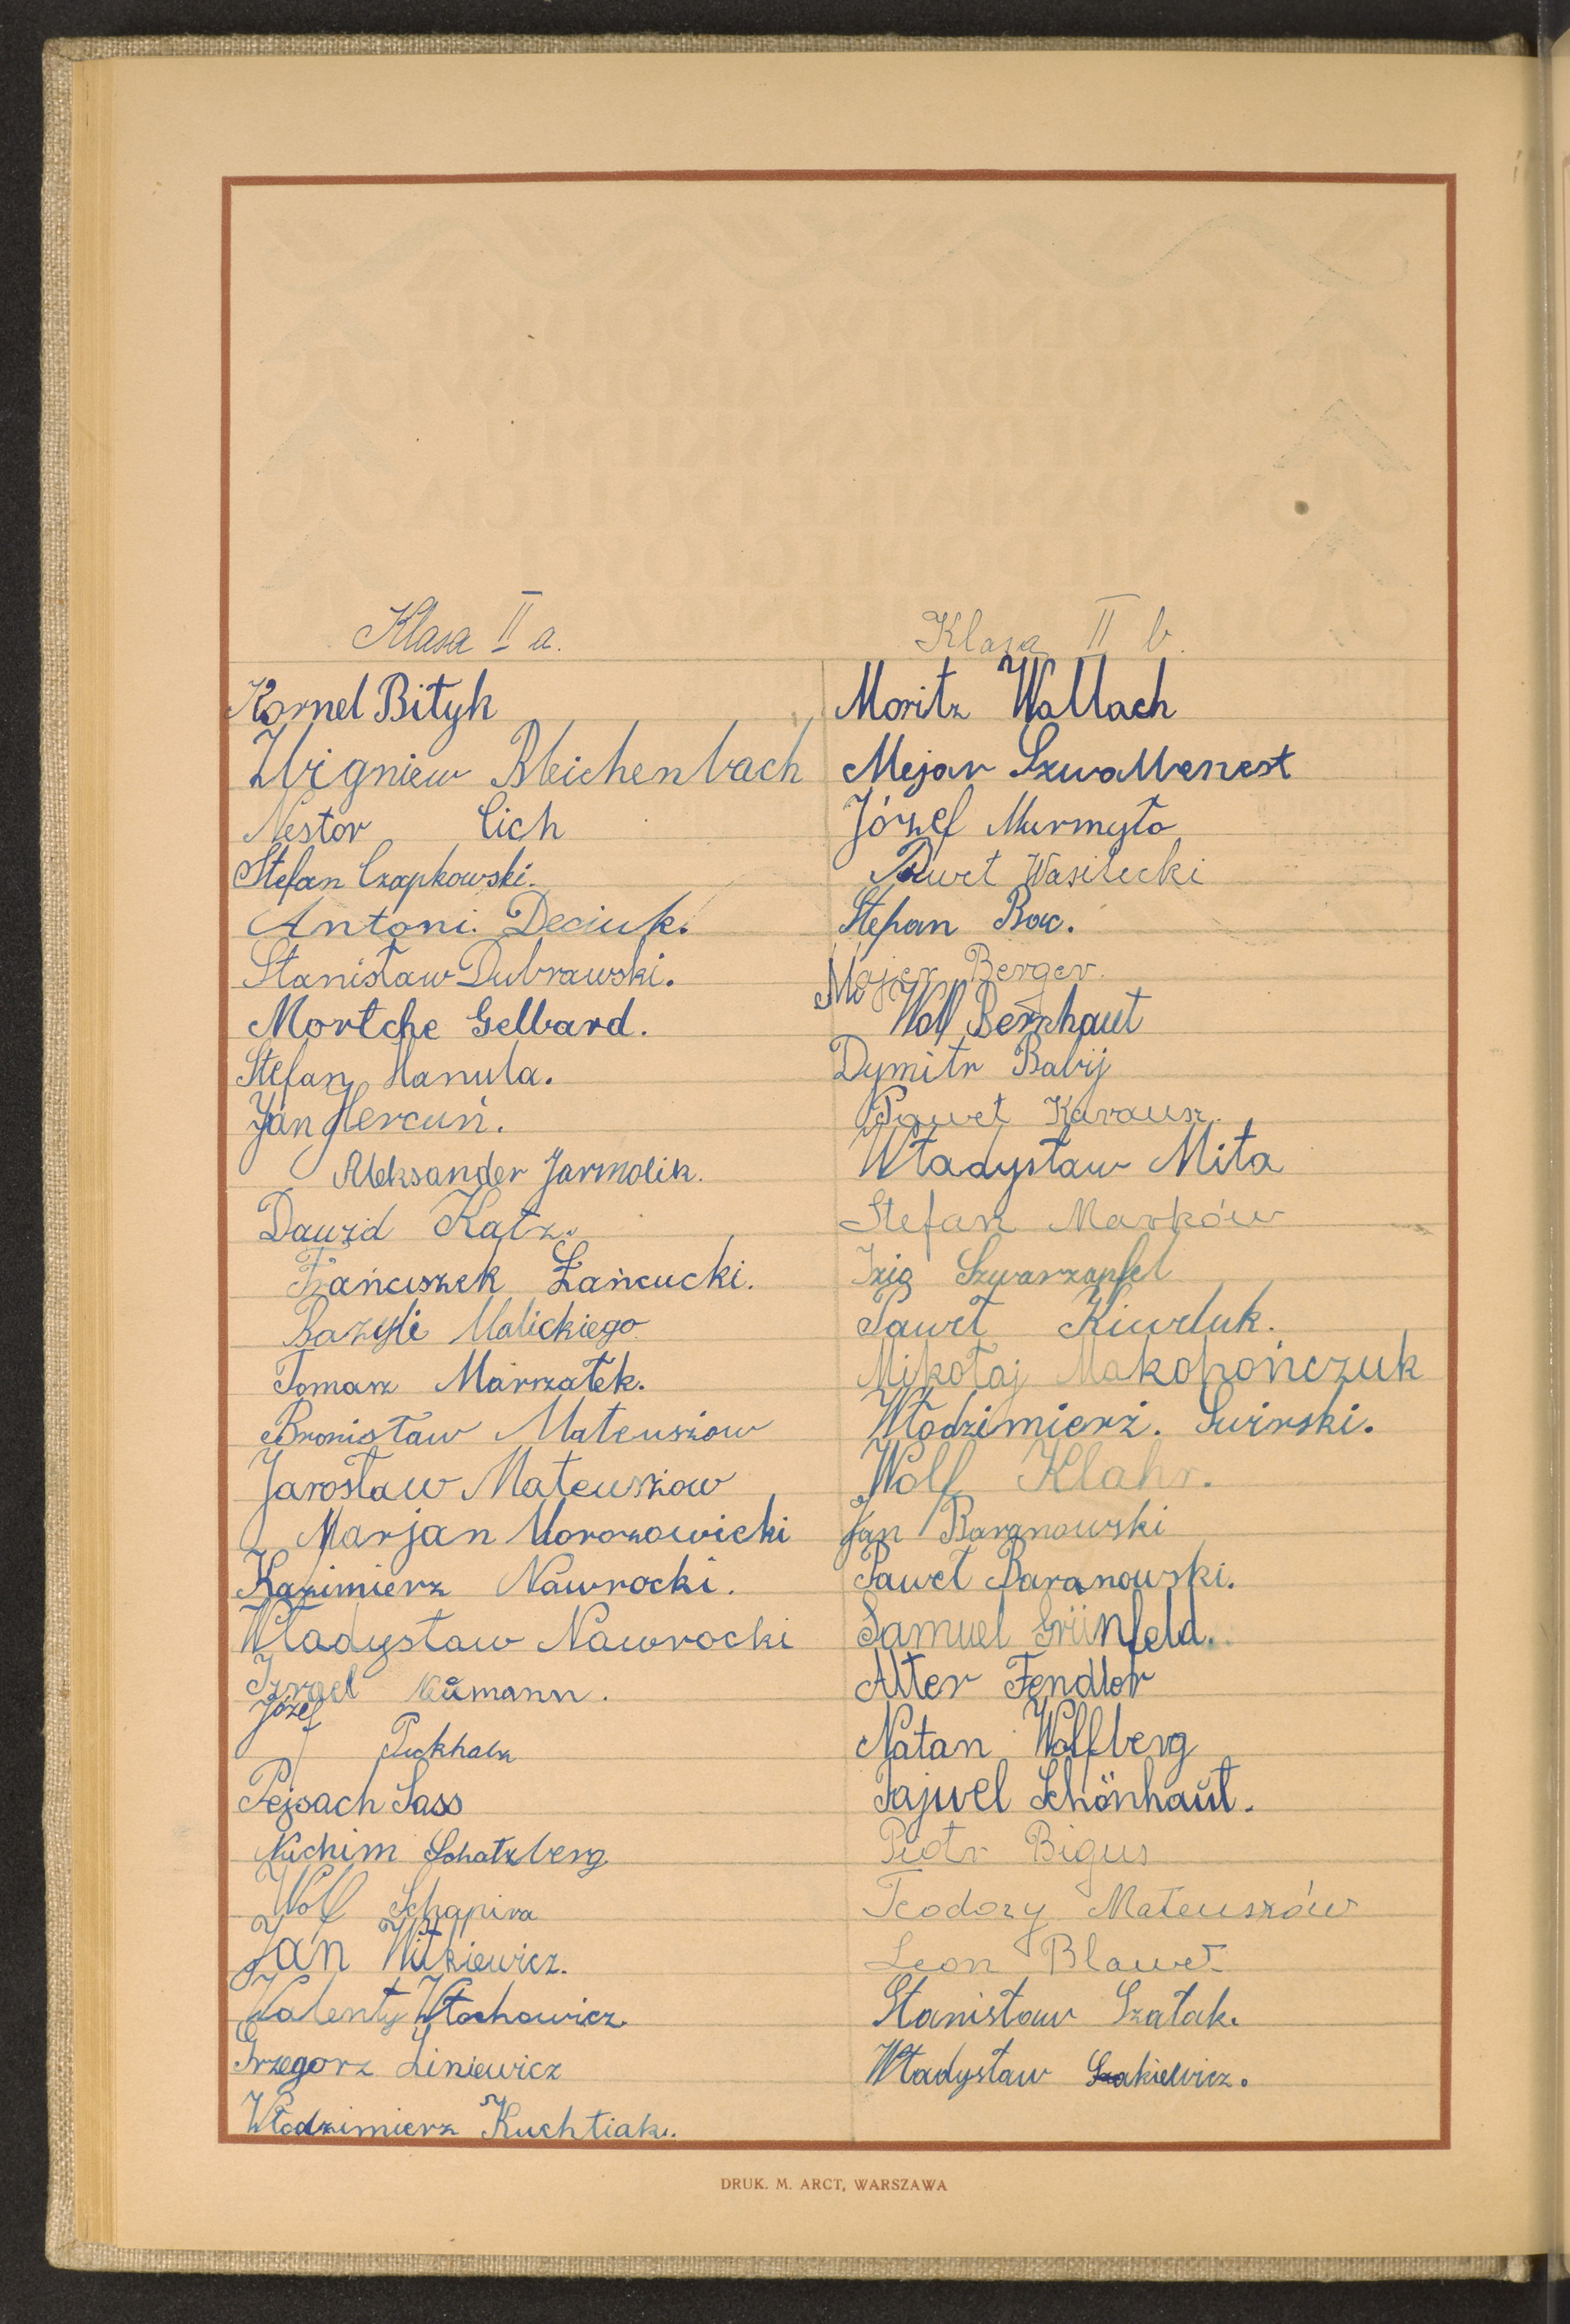 Klasa II a.
Kornel Bityk
Zbigniew Bleichenbach
Nestor Cich
Stefan Czapkowski.
Antoni Deciuk.
Stanisław Dubrawski.
Mortche Gelbard.
Stefan Hanula.
Jan Hercuń.
Aleksander Jarmolik.
Dawid Katz.
Franciszek Łańcucki.
Bazyli Malickiego
Tomasz Marszałek.
Bronisław Mateuszow
Jarosław Mateuszow
Marjan Morozowicki
Kazimierz Nawrocki.
Władysław Nawrocki
Izrael Neumann.
Józef
Puckhalz
Pejsach Sass
Nuchim Schatzberg
Wolf Schapira
Jan Witkiewicz.
Walenty Włochowicz.
Grzegorz Liniewicz
Włodzimierz Kuchtiak.
Klasa II b.
Moritz Wallach
Mejar Szwalbenest
Józef Murmyło
Paweł Wasilecki
Stefan Bac.
Majer Berger.
Wolf Bernhaut
Dymitr Babij
Paweł Karausz.
Władysław Miła
Stefan Marków
Izig Szwarzapfel
Paweł Kiweluk.
Mikołaj Makohończuk
Włodzimierz. Swirski.
Wolf Klahr.
Jan Baranowski
Paweł Baranowski.
Samuel Grünfeld.
Alter Fendler
Natan Wolfberg
Fajwel Schönhaut.
Piotr Bigus
Teodozy Mateuszów
Leon Blaweł
Stanisław Szałak.
Władysław Szakiewicz.
DRUK. M. ARCT, WARSZAWA